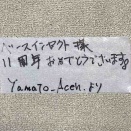 バースインセクト様
11周年おめでとうございます
Yamato_Aceh.より